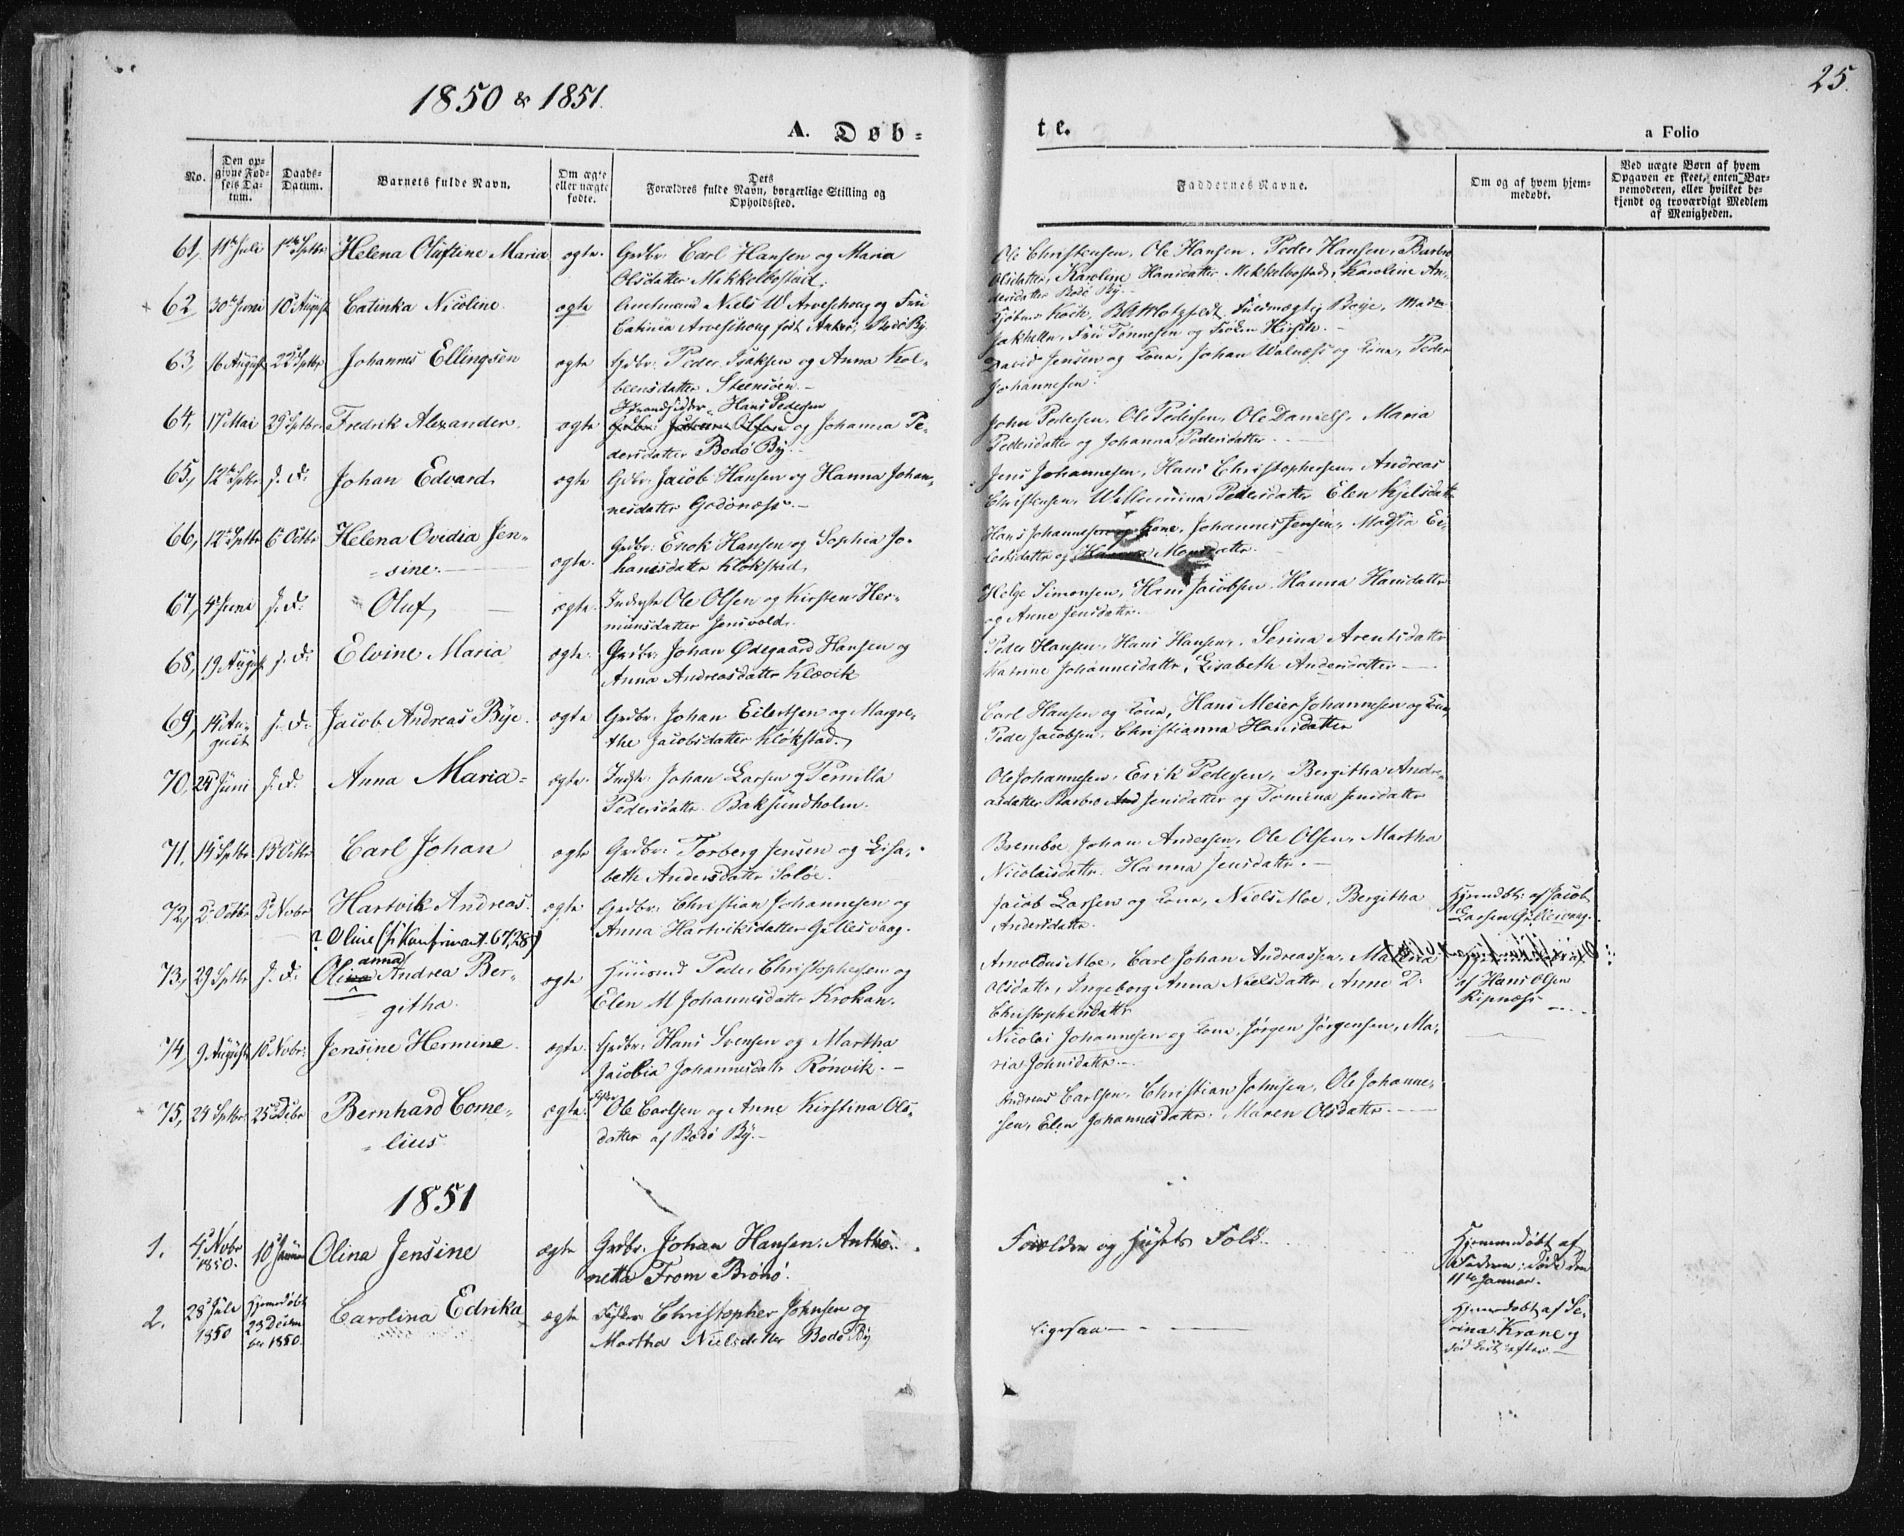 1850 & 1851.
25.
A. Døb-
te.
a Folio
No.
Den op-
givne Fød-
sels Da-
tum.
Daabs-
Datum.
Barnets fulde Navn.
Om ægte
eller uægte
fødte.
Dets
Forældres fulde Navn, borgerlige Stilling og
Opholdssted.
Faddernes Navne.
Om og af hvem hjem-
medøbt.
Ved uægte Børn af hvem
Opgaven er skeet, enten Bar-
nemoderen, eller hvilket be-
kjendt og troværdigt Medlem
af Menigheden.
61, 11te Juli 1ste Septbr Helena Oluftine Maria ægte. Grdbr. Carl Hansen og Maria
Olsdatter Mekkelbostad.
Ole Christensen, Ole Hansen, Peder Hansen, Barbro
Olsdatter, Karoline Hansdatter Mekkelbostad, Karoline An-
dersdatter Bodø By.
62 30te Juni 10 August Catinka Nicoline ægte Amtmand Niels W Arveschoug og Fru
Catinca Arveschoug født Ankrø, Bodø By.
Koch, Motzfeldt, Fuldmægtig Beije, Madm
Jakhelln, Fru Tønnesen og Frøken Hirsch.
63, 16 August 22 Septbr Johannes Ellingsen ægte Grdbr. Peder Isaksen og Anna Kol-
beensdatter Steensøen.
David Jensen og Kone, Johan Walnæss og Kone, Peder
Johannesen.
64, 17 Mai 29 Septbr Fredrik Alexander ægte Strandsidder Hans Pedersen
og Johanna Pe-
dersdatter Bodø By.
John Pedersen, Ole Pedersen, Ole Daniels, Maria
Pedersdatter og Johanna Pedersdatter.
65, 12te Septbr s. D. Johan Edvard ægte Grdbr. Jacob Hansen og Hanna Johan-
nesdatter Godønæss.
Jens Johannesen, Hans Christophersen, Andreas
Christensen, Willumina Pedersdatter Elen Kjelsdatter
66, 12te Septbr 6 Octbr Helena Ovidia Jen-
sine. ægte. Grdbr. Enok Hansen og Sophia Jo-
hansdatter Kløkstad.
Hans Johannesen og Kone, Johannes Jensen, Madsia Ei-
lertsdatter og Hanna Monsdatter.
67, 4 Juni s. D. Oluf, ægte. Inderste Ole Olsen og Kirsten Her-
mansdatter Jensvold.
Helge Simonsen, Hans Jacobsen, Hanna Hansdatter
og Anne Jensdatter.
68, 19 August s. D. Elvine Maria ægte. Grdbr. Johan Ødegaard Hansen og
Anna Andreasdatter Kløvik
Peder Hansen, Hans Hansen, Serina Arentsdatter
Katrine Johannesdatter, Elisabeth Andersdatter
69, 14 Au-
gust s. D. Jacob Andreas Bye. ægte Grdbr. Johan Eilertsen og Margre-
the Jacobsdatter Kløkstad.
Carl Hansen og Kone, Hans Meier Johannesen og Kone,
Peder Jacobsen, Christianna Hansdatter
70, 24 Juni s. D. Anna Maria ægte. Indst. Johan Larsen og Pernilla
Pedersdatter Baksundholm.
Ole Johannesen, Erik Pedersen, Bergitha Andre-
asdatter Barbro Jensdatter og Tomina Jensdatter
71, 14 Septbr 13 Octbr Carl Johan ægte Grdbr. Torberg Jensen og Elisa-
beth Andersdatter Soløe.
Brembo Johan Andersen, Ole Olsen, Martha
Nicolaisdatter. Hanna Jensdatter.
72, 2 Octbr 3 Novbr Hartvik Andreas. ægte Grdbr. Christian Johannesen og
Anna Hartviksdatter Gillesvaag.
Jacob Larsen og Kone, Niels Moe, Bergitha
Andersdatter.
Hjemdbt. af Jacob
Larsen Gillesvaag.
? Oline (s Konfirmant. 67,28)
anna
73, 29 Septbr s. D. Olina Andrea Ber-
githa. ægte Huusmd Peder Christophersen og
Elen M Johannesdatter Krokan.
Arnoldus Moe, Carl Johan Andreassen, Malena
Olsdatter, Ingeborg Anna Nielsdatter, Anne D.
Christophersdatter
af Hans Olsen
Ripnæss
74, 9 August 10 Novbr: Jensine Hermine ægte. Grdbr. Hans Svensen og Martha
Jacobia Johannesdatter Rønvik.
Nicolai Johannesen og Kone, Jørgen Jørgensen, Ma-
ria Johnsdatter.
75, 24 Septbr 25 Decbr Bernhard Corne-
lius. ægte. Ole Carlsen og Anne Kirstina Ols-
datter af Bodø By.
Andreas Carlsen, Christian Johnsen, Ole Johanne-
sen, Elen Johannesdatter. Maren Olsdatter.
1851
1. 4 Novbr
1850. 10 Januar Olina Jensine ægte Grdbr. Johan Hansen. Antho-
netta From Brodø.
Forældre og Husets Folk.
Hjemmedøbt af
Faderen. Død den
11te Januar.
2. 28 Juli
1850 Hjemdøbt
23 Decem
ber 1850. Carolina Edrika ægte Fisker Christopher Johnsen og
Martha Nielsdatter Bodø By
ligesaa
Hjemdøbt af Se-
rina Krane og
død kort efter.